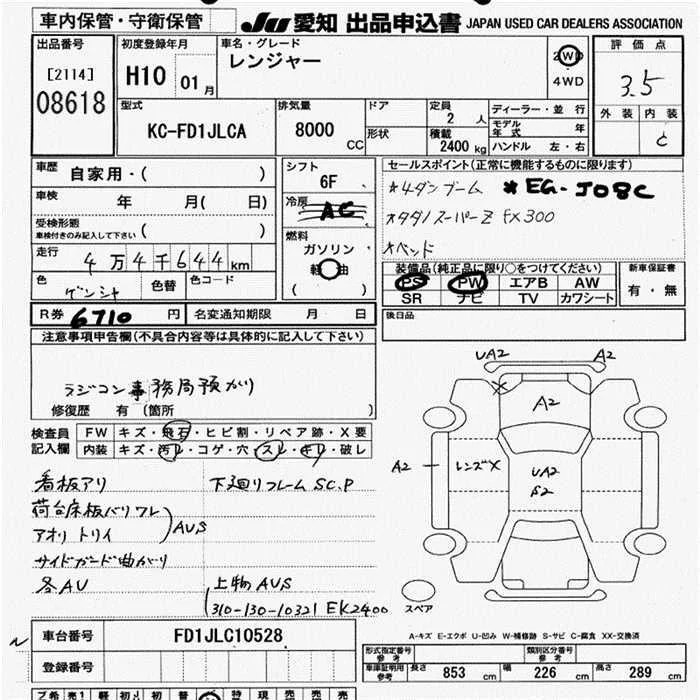 車内保管・守衛保管
JU 愛知 出品申込書 JAPAN USED CAR DEALERS ASSOCIATION
出品番号
[2114]
08618
初度登録年月
H10 01月
車名・グレード
レンジャー
2WD
4WD
評価点
3.5
外装 内装
C
型式
KC-FD1JLCA
排気量
8000 CC
ドア
形状
定員
2 人
積載
2400 kg
ディーラー・並行
モデル年式 年
ハンドル 左・右
車歴
自家用・( )
車検
年 月( 日)
受検形態
車検付きのみ記入して下さい ( )
走行
4万4千644km
色
ゲンシャ
色替
色コード
シフト
6F
冷房
AC
燃料
ガソリン
軽油
( )
セールスポイント(正常に機能するものに限ります)
*4ダンブーム *EG-J08C
*タダノスーパーZ fx300
*ベッド
装備品(純正品に限り○をつけてください)
PS PW エアB AW
SR ナビ TV カワシート
新車保証書
有・無
R券 6710 円
名変通知期限 月 日
後日品
注意事項申告欄(不具合内容等は具体的に記入して下さい)
ラジコン事務局預かり
修復歴 有(箇所 )
検査員記入欄
FW キズ・飛石・ヒビ割・リペア跡・X要
内装 キズ・汚レ・コゲ・穴・スレ・キレ・破レ
看板アリ
荷台床板バリワレ
アオリトリイ
AUS
サイドガード曲がり
各AU
下廻りフレームSC.P
上物AUS
310-130-10321 EK2400
UA2
A2
X
A2
A2
レンズX
UA2
S2
スペア
A-キズ E-エクボ U-凹み W-補修跡 S-サビ C-腐食 XX-交換済
車台番号
FD1JLC10528
登録番号
形式指定番号
参考
類別区分番号
参考
車庫証明用
参考
長さ 853 cm 幅 226 cm 高さ 289 cm